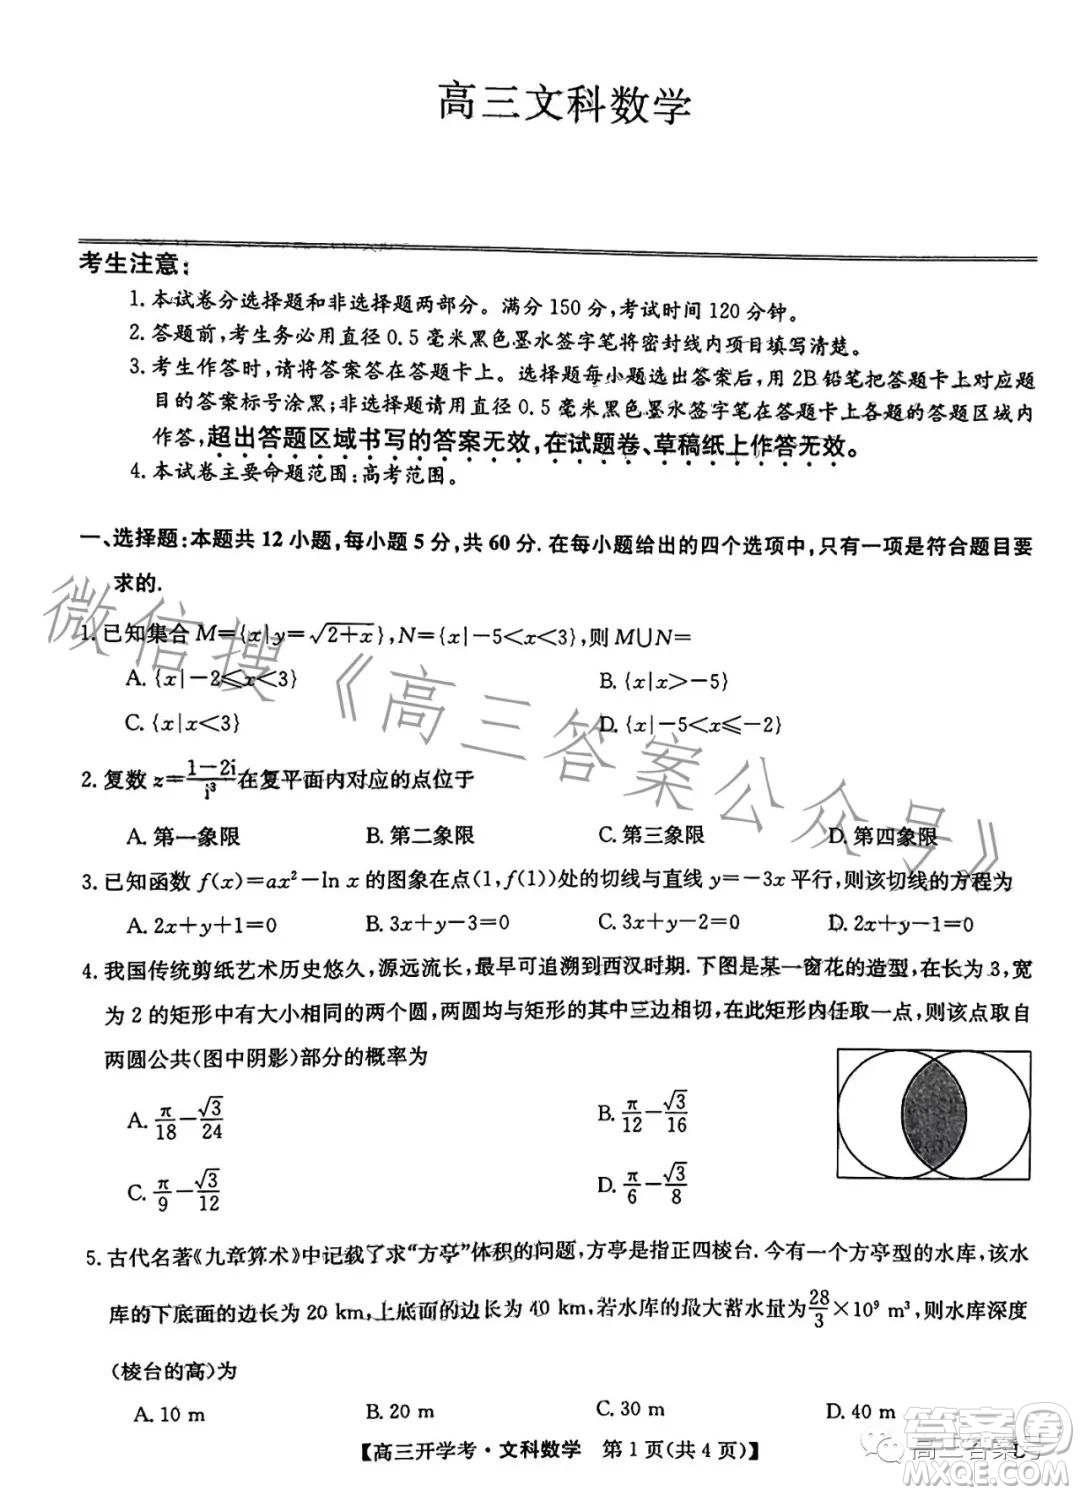 高三文科数学
考生注意：
1. 本试卷分选择题和非选择题两部分。满分 150 分，考试时间 120 分钟。
2. 答题前，考生务必用直径 0.5 毫米黑色墨水签字笔将密封线内项目填写清楚。
3. 考生作答时，请将答案答在答题卡上。选择题每小题选出答案后，用 2B 铅笔把答题卡上对应题
目的答案标号涂黑；非选择题请用直径 0.5 毫米黑色墨水签字笔在答题卡上各题的答题区域内
作答，超出答题区域书写的答案无效，在试题卷、草稿纸上作答无效。
4. 本试卷主要命题范围：高考范围。
一、选择题：本题共 12 小题，每小题 5 分，共 60 分. 在每小题给出的四个选项中，只有一项是符合题目要
求的.
1. 已知集合 M={x|y=√(2+x)}, N={x|-5<x<3}, 则 M∪N=
A. {x|-2⩽x<3}
B. {x|x>-5}
C. {x|x<3}
D. {x|-5<x⩽-2}
2. 复数 z=(1-2i)/i³ 在复平面内对应的点位于
A. 第一象限
B. 第二象限
C. 第三象限
D. 第四象限
3. 已知函数 f(x)=ax²-ln x 的图象在点(1, f(1))处的切线与直线 y=-3x 平行，则该切线的方程为
A. 2x+y+1=0
B. 3x+y-3=0
C. 3x+y-2=0
D. 2x+y-1=0
4. 我国传统剪纸艺术历史悠久，源远流长，最早可追溯到西汉时期. 下图是某一窗花的造型，在长为 3，宽
为 2 的矩形中有大小相同的两个圆，两圆均与矩形的其中三边相切，在此矩形内任取一点，则该点取自
两圆公共(图中阴影)部分的概率为
A. π/18-√3/24
B. π/12-√3/16
C. π/9-√3/12
D. π/6-√3/8
5. 古代名著《九章算术》中记载了求“方亭”体积的问题，方亭是指正四棱台. 今有一个方亭型的水库，该水
库的下底面的边长为 20 km，上底面的边长为 40 km，若水库的最大蓄水量为 28/3×10⁹ m³，则水库深度
(棱台的高)为
A. 10 m
B. 20 m
C. 30 m
D. 40 m
【高三开学考·文科数学 第 1 页(共 4 页)】
微信搜《高三答案公众号》
高三答案号
答案圈
MXQE.COM